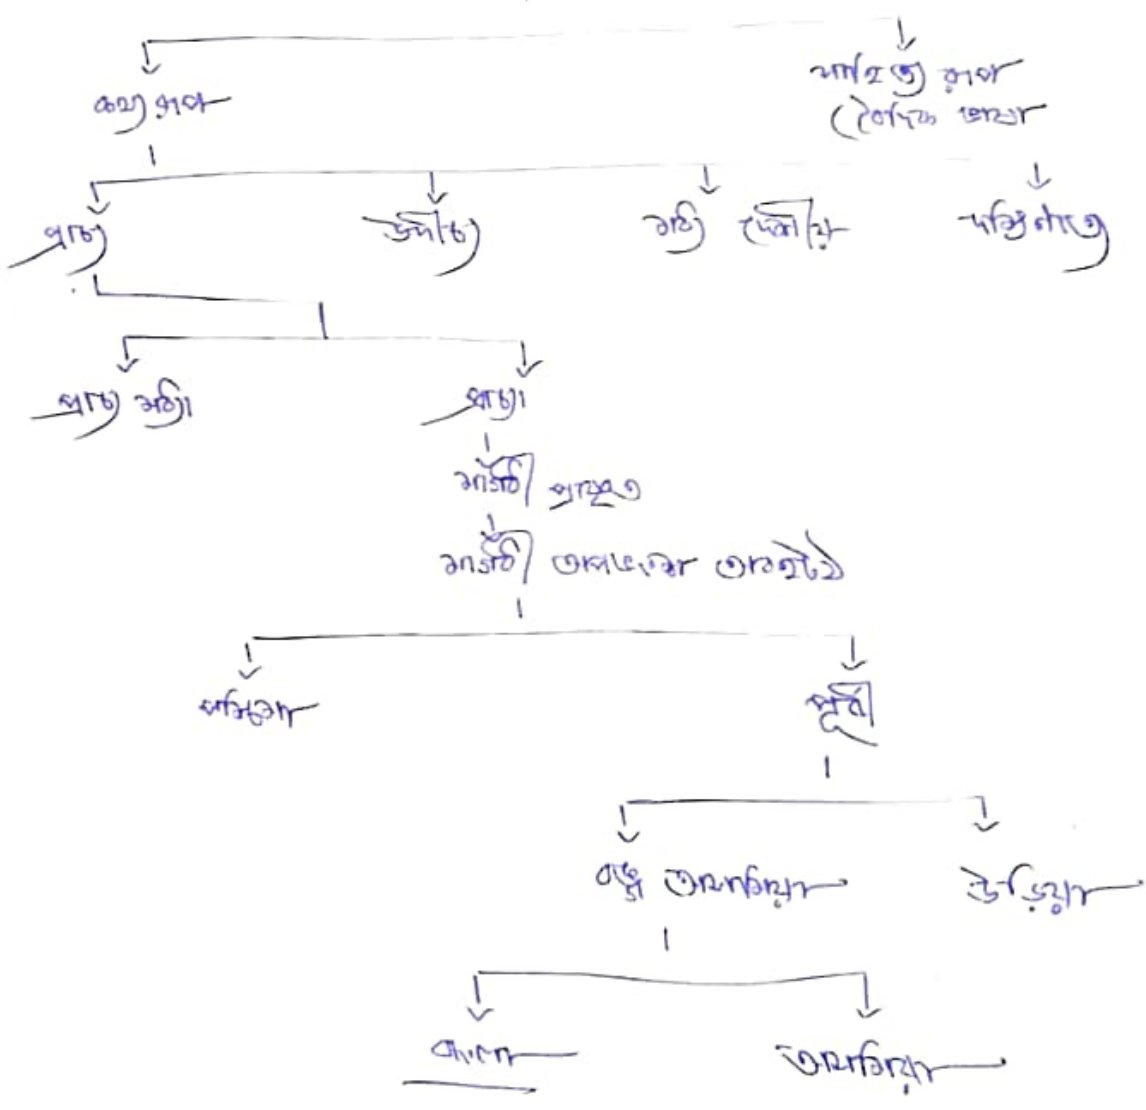 কথ্য রূপ
সাহিত্য রূপ
(বৈদিক ভাষা
প্রাচ্য
উদীচ্য
মধ্য দেশীয়
দাক্ষিণাত্য
প্রাচ্য মধ্যা
প্রাচ্যা
মাগধী প্রাকৃত
মাগধী অপভ্রংশ অবহটঠ
পশ্চিমা
পূর্বী
বঙ্গ অসমিয়া
উড়িয়া
বাংলা
অসমিয়া